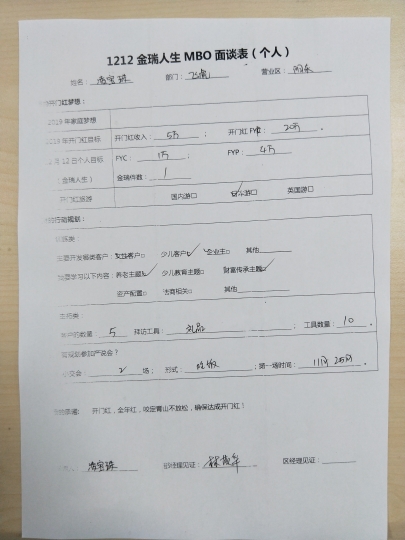 1212 金瑞人生 MBO 面谈表（个人）
姓名： 宝珠 部门： 飞虎 营业区：
开门红梦想：
2019 年家庭梦想
2019 年开门红目标 开门红收入： 5万 开门红 FYP： 20万
月 12 日个人目标 FYC： 1万 FYP： 4万
金瑞人生） 金瑞件数： 1
开门红旅游 国内游□ 游□ 英国游□
行动规划：
主要开发哪类客户：女性客户□ 少儿客户✓ 企业主□ 其他
需要学习以下内容：养老主题✓ 少儿教育主题□ 财富传承主题✓
资产配置□ 法商相关□ 其他
主拓类：
客户的数量 5 拜访工具： 礼品 工具数量： 10 。
参加产说会？
小交会： 2 场； 形式： 吃饭 ；第一场时间： 11月25日 。
承诺： 开门红，全年红，咬定青山不放松，确保达成开门红！
宝珠 部经理见证： 区经理见证：